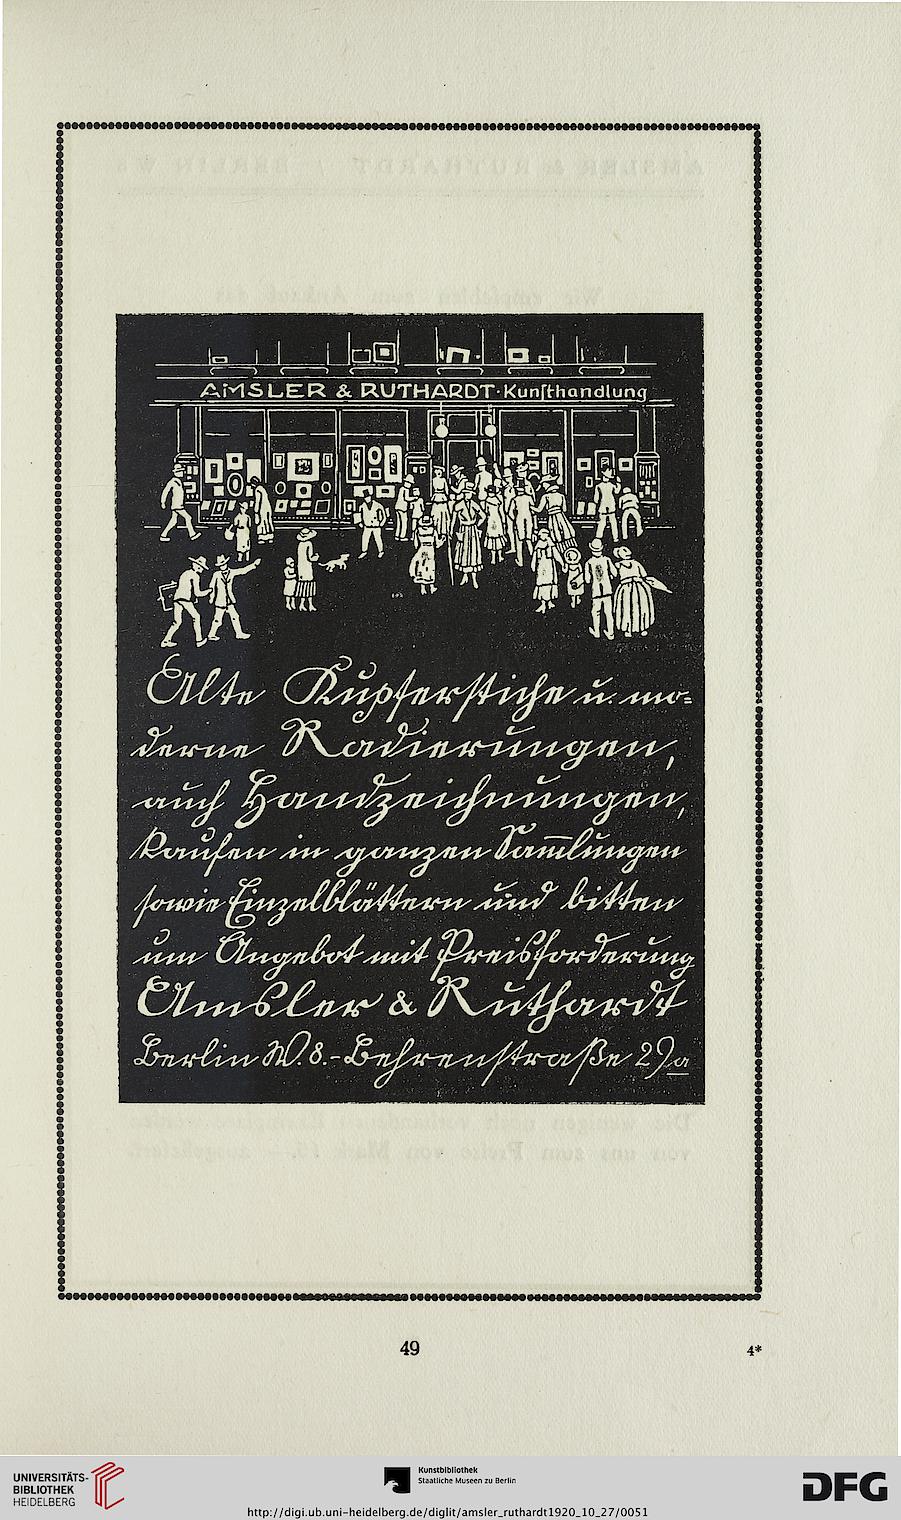 AMSLER & RUTHARDT·Kunſthandlung
Alte Kupferstiche u. mo=
derne Radierungen,
auch Handzeichnungen,
kaufen in ganzen Sam̅lungen
sowie Einzelblättern und bitten
um Angebot mit Preisforderung
Amsler & Ruthardt
Berlin W. 8.-Behrenstraße 29a
49
4*
UNIVERSITÄTS-
BIBLIOTHEK
HEIDELBERG
Kunstbibliothek
Staatliche Museen zu Berlin
DFG
http://digi.ub.uni-heidelberg.de/diglit/amsler_ruthardt1920_10_27/0051